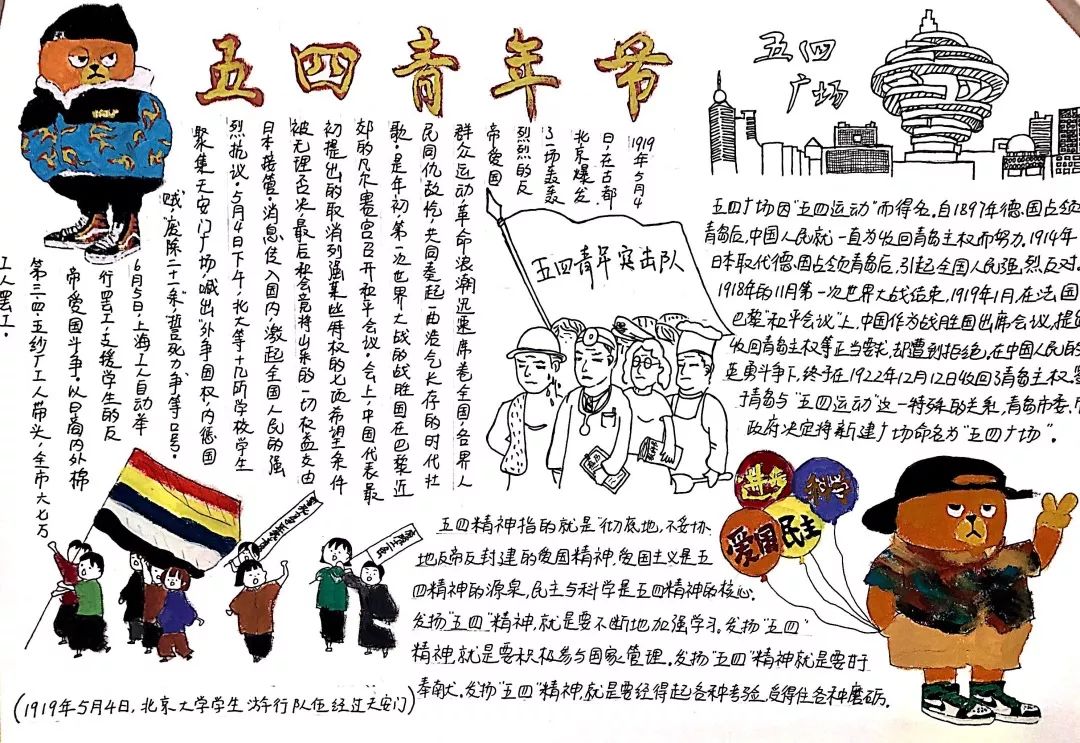 五四青年节
五四
广场
1919年5月4
日,在古都
北京爆发
了一场轰轰
烈烈的反
帝爱国
群众运动,革命浪潮迅速席卷全国,各界人
民同仇敌忾,共同奏起一曲浩气长存的时代壮
歌。是年初,第一次世界大战的战胜国在巴黎近
郊的凡尔赛宫召开和平会议。会上,中国代表最
初提出的取消列强某些特权的七项希望条件
被无理否决,最后和会竟将山东的一切权益交由
日本接管。消息传入国内,激起全国人民的强
烈抗议。5月4日下午,北大等十几所学校学生
聚集天安门广场,喊出"外争国权,内惩国
贼,废除二十一条,誓死力争"等口号。
6月5日,上海工人自动举
行罢工,支援学生的反
帝爱国斗争。以日商内外棉
第三、四、五纱厂工人带头,全市六七万
工人罢工。
五四青年突击队
五四广场因"五四运动"而得名。自1897年德国占领
青岛后,中国人民就一直为收回青岛主权而努力。1914年
日本取代德国占领青岛后,引起全国人民强烈反对。
1918年的11月第一次世界大战结束,1919年1月,在法国
巴黎"和平会议"上,中国作为战胜国出席会议,提
收回青岛主权等正当要求,却遭到拒绝,在中国人民的
英勇斗争下,终于在1922年12月12日收回了青岛主权.
于青岛与"五四运动"这一特殊的关系,青岛市委,
政府决定将新建广场命名为"五四广场"。
进步
科学
爱国
民主
五四精神指的就是"彻底地,不妥协
地反帝反封建的爱国精神.爱国主义是五
四精神的源泉,民主与科学是五四精神的核心.
发扬"五四"精神,就是要不断地加强学习。发扬"五四"
精神,就是要积极参与国家管理。发扬"五四"精神就是要甘于
奉献。发扬"五四"精神就是要经得起各种考验,受得住各种磨砺。
(1919年5月4日,北京大学学生游行队伍经过天安门)